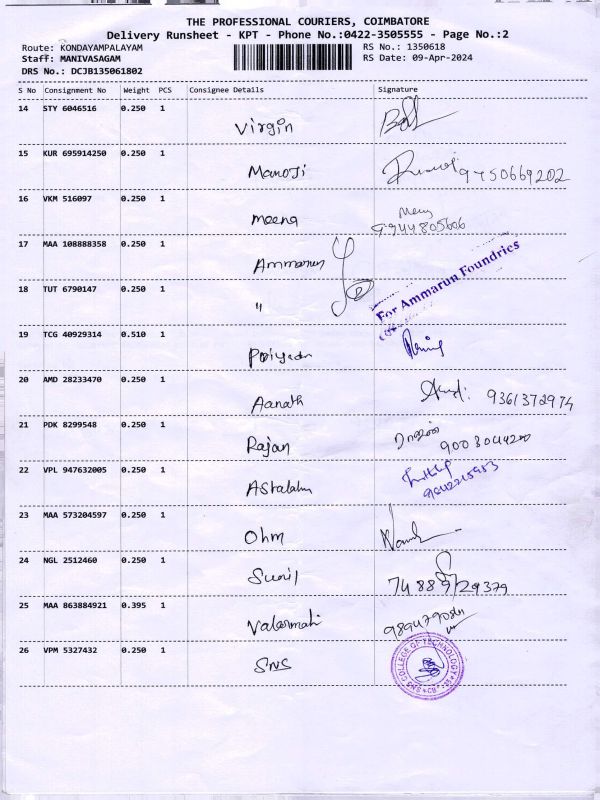 THE PROFESSIONAL COURIERS, COIMBATORE
Delivery Runsheet - KPT - Phone No.:0422-3505555 - Page No.:2
Route: KONDAYAMPALAYAM
RS No.: 1350618
Staff: MANIVASAGAM
RS Date: 09-Apr-2024
DRS No.: DCJB135061802
S No Consignment No Weight PCS Consignee Details Signature
14 STY 6046516 0.250 1 Virgin
15 KUR 695914250 0.250 1 Manoji 9750669202
16 VKM 516097 0.250 1 Meena
9944805606
17 MAA 108888358 0.250 1 Ammarun
18 TUT 6790147 0.250 1 "
For Ammarun Foundries
19 TCG 40929314 0.510 1
20 AMD 28233470 0.250 1 Aanath 9361372974
21 PDK 8299548 0.250 1 Rajan
22 VPL 947632005 0.250 1
23 MAA 573204597 0.250 1 Ohm
24 NGL 2512460 0.250 1 Sunil
25 MAA 863884921 0.395 1 Valarmathi
26 VPM 5327432 0.250 1 SNS
SNS COLLEGE OF TECHNOLOGY